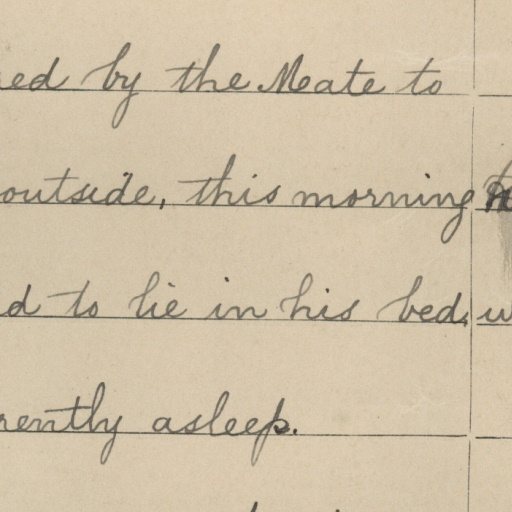 ed by the Mate to
outside, this morning
d to lie in his bed, w
rently asleep.